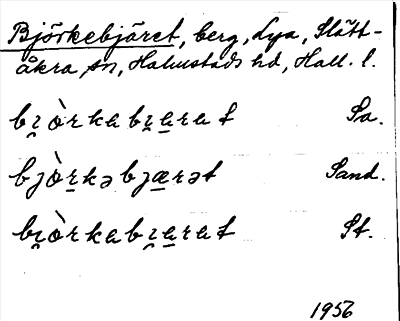 Björkebjäret, berg, Lya, Slätt-
åkra sn, Halmstads hd, Hall. l.
Sa.
bjòrkəbjærət Sand.
St.
1956